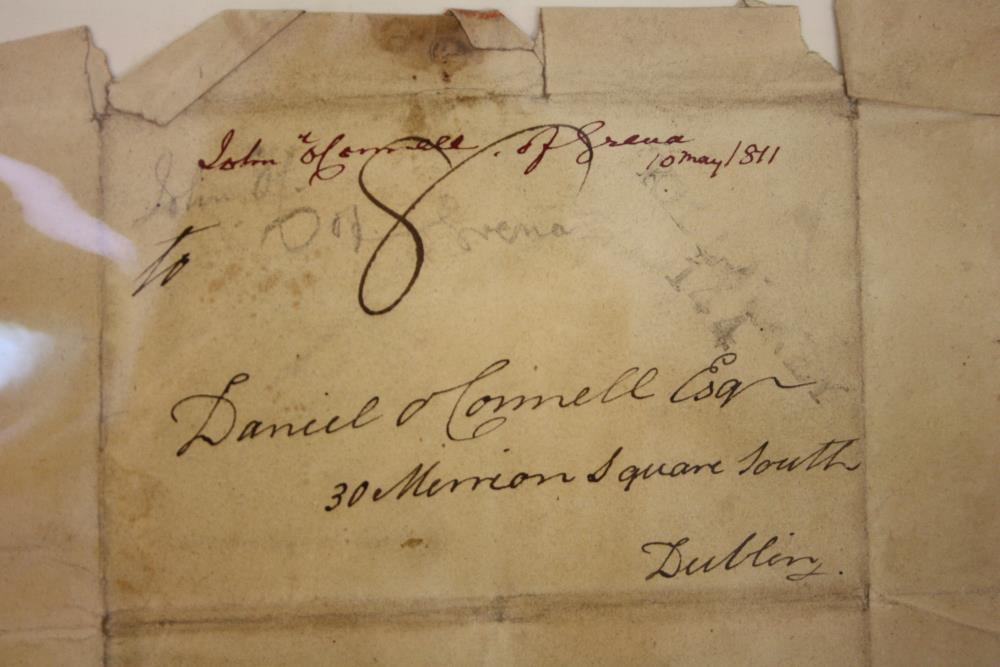 John O'Connell of Grena
10 May 1811
John O'
8
Dof Grena
to
Daniel O Connell Esqr
30 Merrion Square South
Dublin.